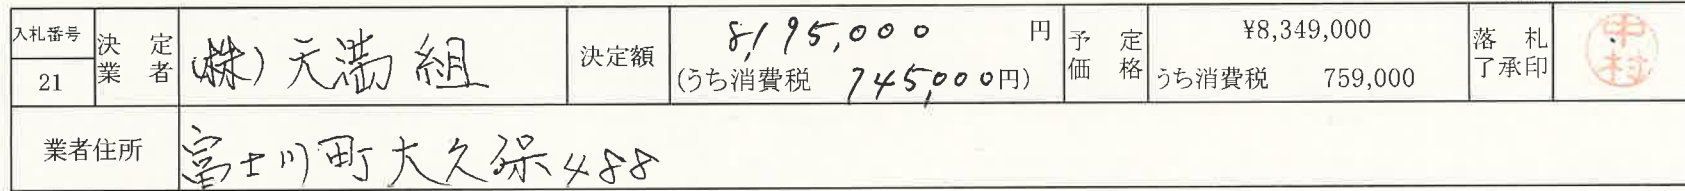 入札番号 21
決定業者 (株)天満組
決定額 8,195,000円
(うち消費税 745,000円)
予定価格 ¥8,349,000
うち消費税 759,000
落札了承印 中村
業者住所 富士川町大久保488